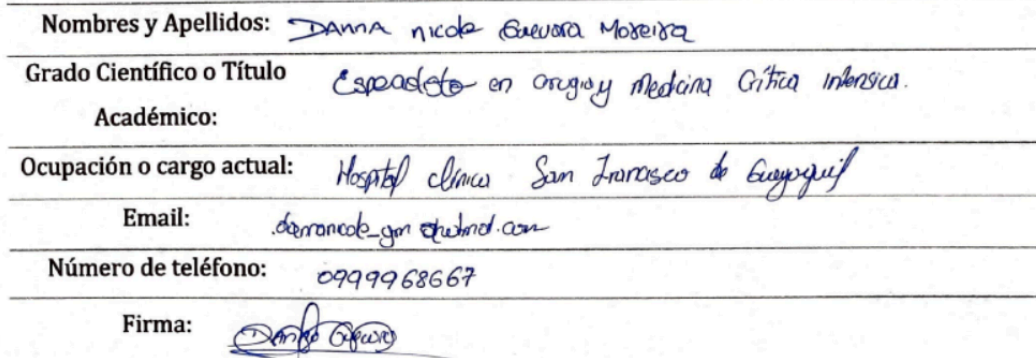 Nombres y Apellidos: DAnnA nicole Guevara Moreira
Grado Científico o Título
Académico: Especialista en cirugia y Medicina Crítica intensiva.
Ocupación o cargo actual: Hospital clínica San Francisco de Guayaquil
Email:
Número de teléfono: 0999968667
Firma: